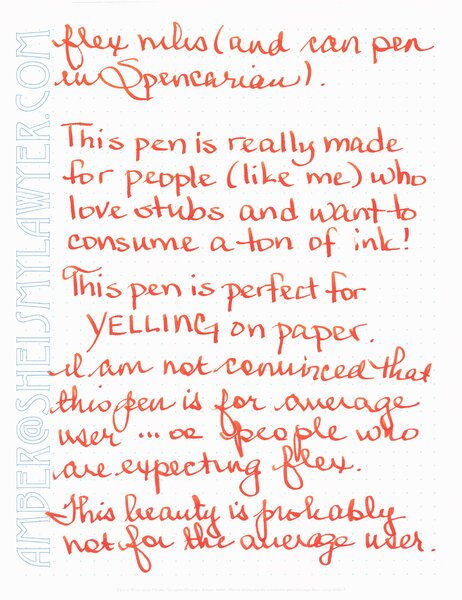 flex nibs (and can pen
in Spencerian).
This pen is really made
for people (like me) who
love stubs and want to
consume a ton of ink!
This pen is perfect for
YELLING on paper.
I am not convinced that
this pen is for average
user ... or people who
are expecting flex.
This beauty is probably
not for the average user.
AMBER@SHEISMYLAWYER.COM